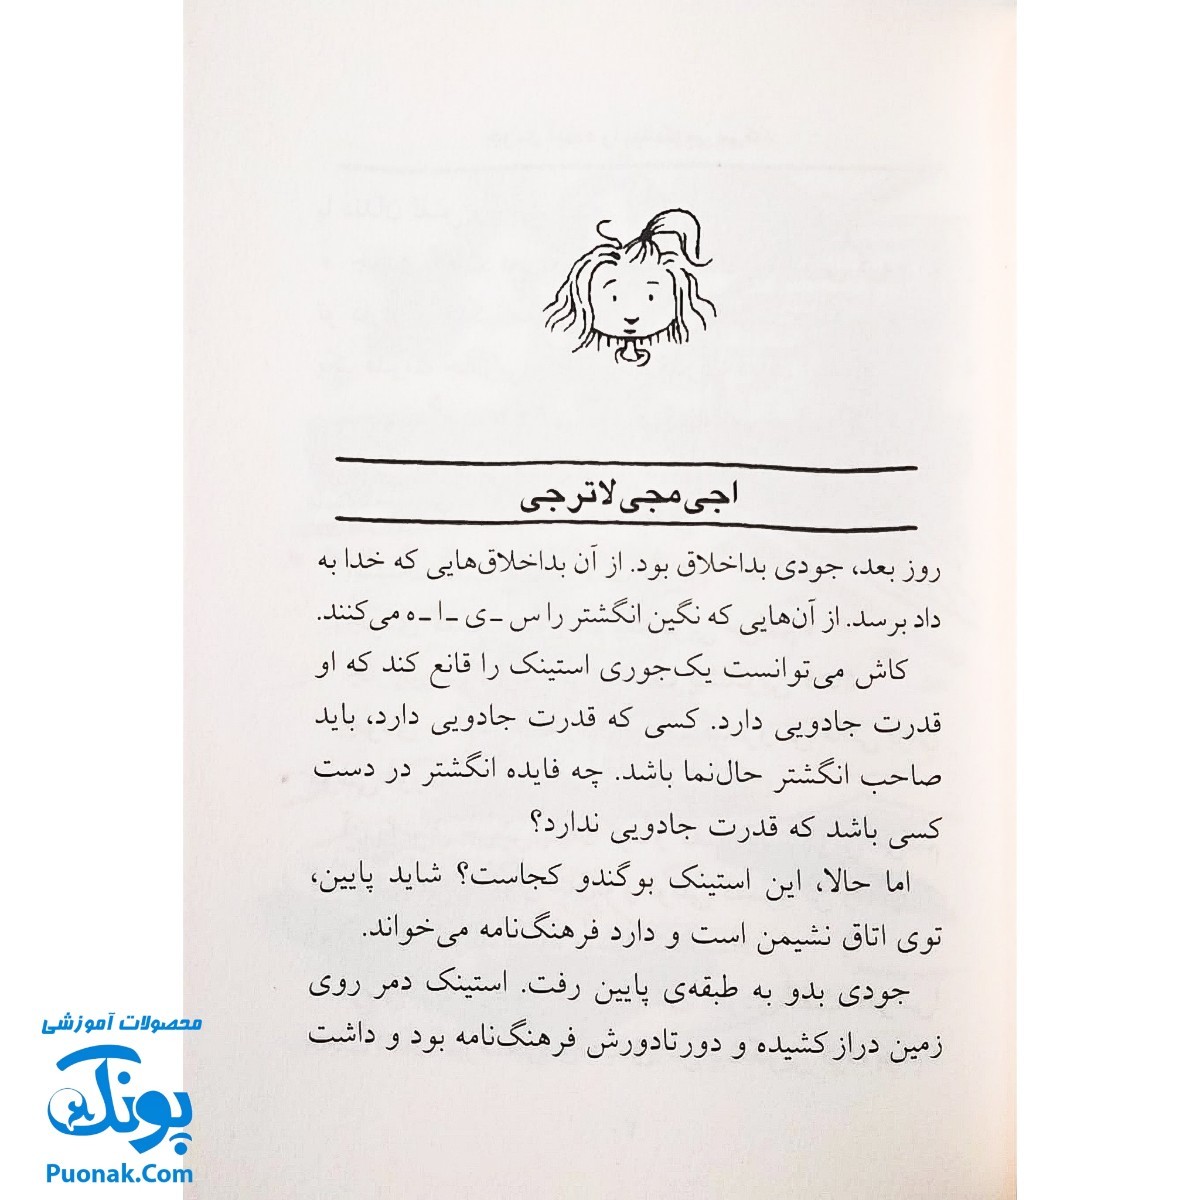 اجی مجی لاترجی
روز بعد، جودی بداخلاق بود. از آن بداخلاق‌هایی که خدا به
داد برسد. از آن‌هایی که نگین انگشتر را س ـ ی ـ ا ـ ه می‌کنند.
کاش می‌توانست یک‌جوری استینک را قانع کند که او
قدرت جادویی دارد. کسی که قدرت جادویی دارد، باید
صاحب انگشتر حال‌نما باشد. چه فایده انگشتر در دست
کسی باشد که قدرت جادویی ندارد؟
اما حالا، این استینک بوگندو کجاست؟ شاید پایین،
توی اتاق نشیمن است و دارد فرهنگ‌نامه می‌خواند.
جودی بدو به طبقه‌ی پایین رفت. استینک دمر روی
زمین دراز کشیده و دورتادورش فرهنگ‌نامه بود و داشت
محصولات آموزشی
پونک
Puonak.Com